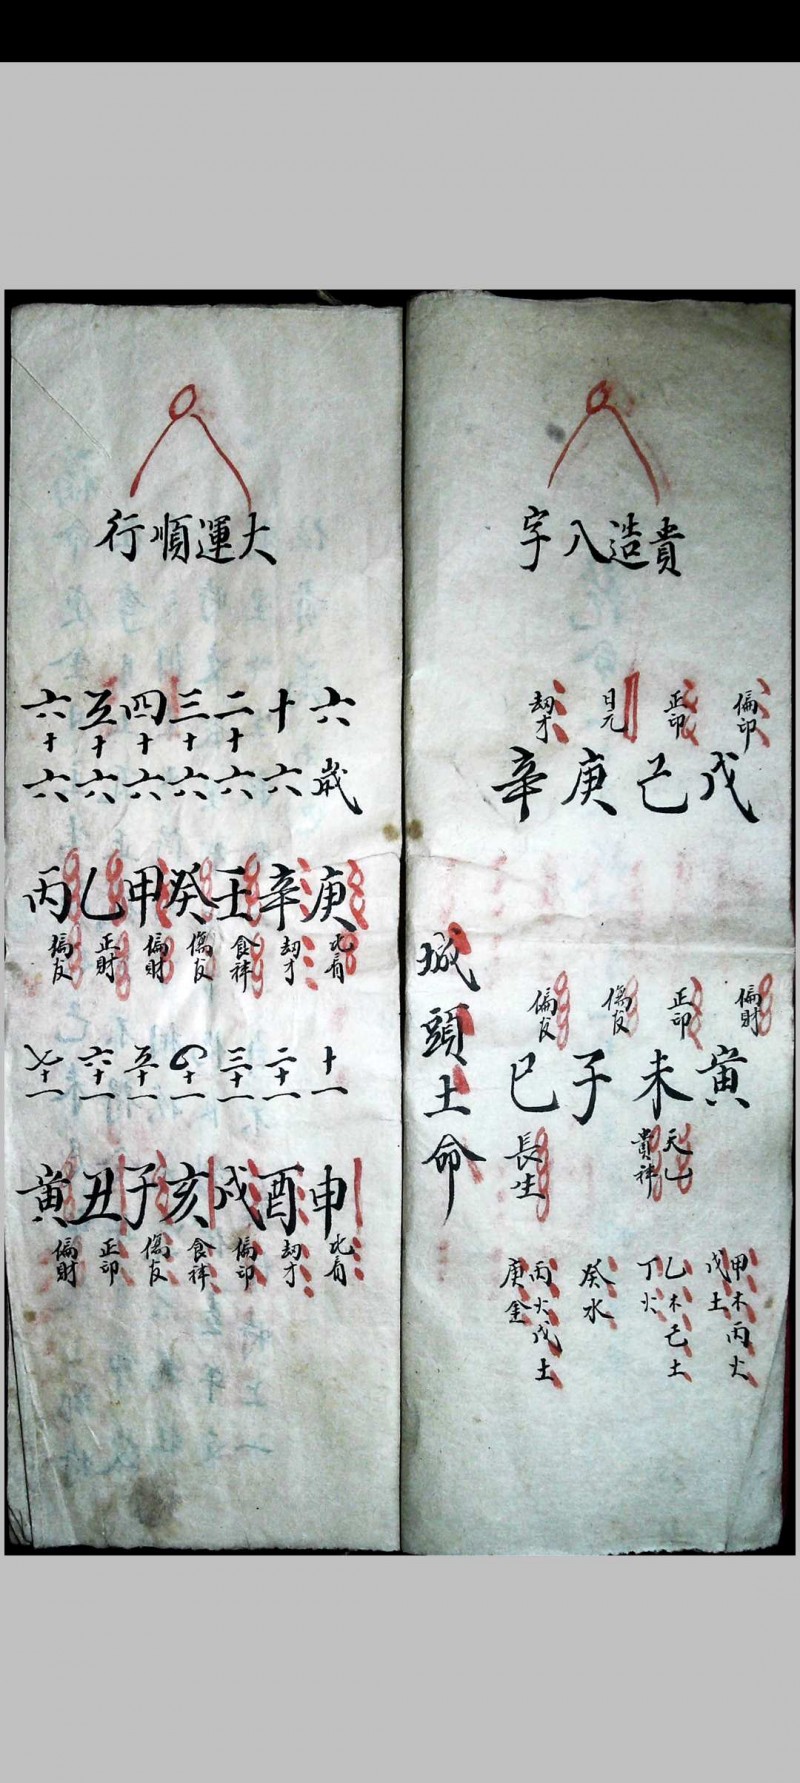 貴造八字
偏印 正印 日元 劫才
戊己庚辛
偏財 正印 傷官 偏官
寅未子巳
天乙貴神 長生
甲木丙火戊土 乙木己土丁火 癸水 丙火戊土庚金
城頭土命
大運順行
六歲 十六 二十六 三十六 四十六 五十六 六十六
庚辛壬癸甲乙丙
比肩 劫才 食神 傷官 偏財 正財 偏官
十一 二十一 三十一 四十一 五十一 六十一 七十一
申酉戌亥子丑寅
比肩 劫才 偏印 食神 傷官 正印 偏財